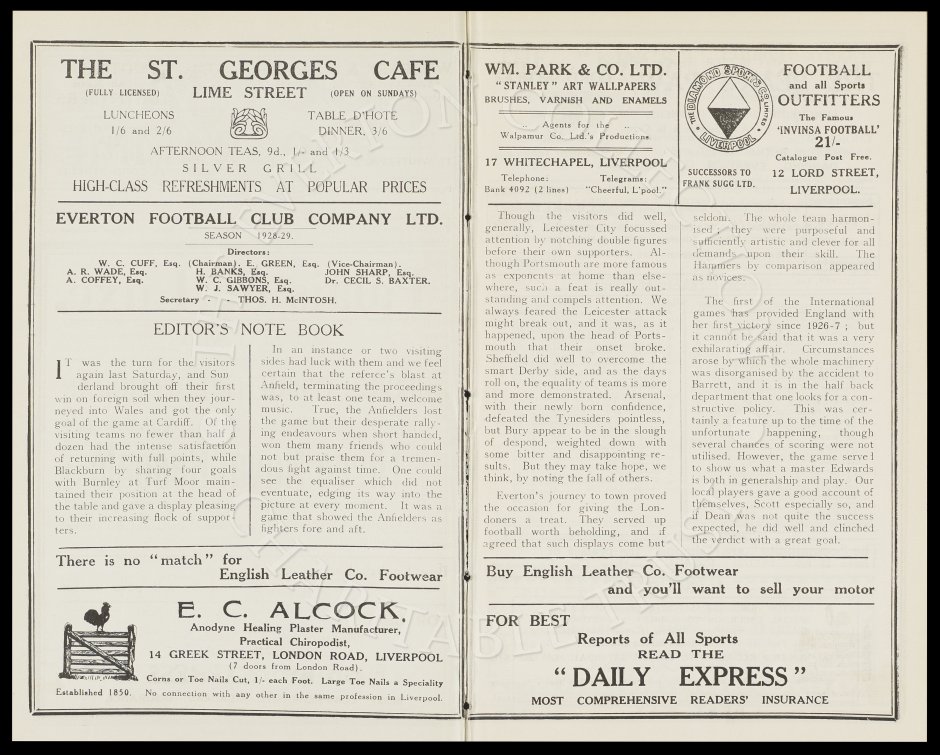 THE ST. GEORGES CAFE
(FULLY LICENSED) LIME STREET (OPEN ON SUNDAYS)
LUNCHEONS
1/6 and 2/6
TABLE D'HOTE
DINNER, 3/6
AFTERNOON TEAS, 9d., 1/- and 1/3
SILVER GRILL
HIGH-CLASS REFRESHMENTS AT POPULAR PRICES
EVERTON FOOTBALL CLUB COMPANY LTD.
SEASON 1928-29.
Directors:
W. C. CUFF, Esq. (Chairman). E. GREEN, Esq. (Vice-Chairman).
A. R. WADE, Esq. H. BANKS, Esq. JOHN SHARP, Esq.
A. COFFEY, Esq. W. C. GIBBONS, Esq. Dr. CECIL S. BAXTER.
W. J. SAWYER, Esq.
Secretary - - THOS. H. McINTOSH.
EDITOR'S NOTE BOOK
IT was the turn for the visitors
again last Saturday, and Sun
derland brought off their first
win on foreign soil when they jour-
neyed into Wales and got the only
goal of the game at Cardiff. Of the
visiting teams no fewer than half a
dozen had the intense satisfaction
of returning with full points, while
Blackburn by sharing four goals
with Burnley at Turf Moor main-
tained their position at the head of
the table and gave a display pleasing
to their increasing flock of suppor-
ters.
In an instance or two visiting
sides had luck with them and we feel
certain that the referee's blast at
Anfield, terminating the proceedings
was, to at least one team, welcome
music. True, the Anfielders lost
the game but their desperate rally-
ing endeavours when short handed,
won them many friends who could
not but praise them for a tremen-
dous fight against time. One could
see the equaliser which did not
eventuate, edging its way into the
picture at every moment. It was a
game that showed the Anfielders as
fighters fore and aft.
There is no "match" for
English Leather Co. Footwear
E. C. ALCOCK,
Anodyne Healing Plaster Manufacturer,
Practical Chiropodist,
14 GREEK STREET, LONDON ROAD, LIVERPOOL
(7 doors from London Road).
Corns or Toe Nails Cut, 1/- each Foot. Large Toe Nails a Speciality
Established 1850. No connection with any other in the same profession in Liverpool.
WM. PARK & CO. LTD.
"STANLEY" ART WALLPAPERS
BRUSHES, VARNISH AND ENAMELS
.. Agents for the ..
Walpamur Co. Ltd.'s Productions
17 WHITECHAPEL, LIVERPOOL
Telephone: Telegrams:
Bank 4092 (2 lines) "Cheerful, L'pool."
THE DIAMOND SPORTS CO LIMITED
LIVERPOOL
SUCCESSORS TO
FRANK SUGG LTD.
FOOTBALL
and all Sports
OUTFITTERS
The Famous
'INVINSA FOOTBALL'
21/-
Catalogue Post Free.
12 LORD STREET,
LIVERPOOL.
Though the visitors did well,
generally, Leicester City focussed
attention by notching double figures
before their own supporters. Al-
though Portsmouth are more famous
as exponents at home than else-
where, such a feat is really out-
standing and compels attention. We
always feared the Leicester attack
might break out, and it was, as it
happened, upon the head of Ports-
mouth that their onset broke.
Sheffield did well to overcome the
smart Derby side, and as the days
roll on, the equality of teams is more
and more demonstrated. Arsenal,
with their newly born confidence,
defeated the Tynesiders pointless,
but Bury appear to be in the slough
of despond, weighted down with
some bitter and disappointing re-
sults. But they may take hope, we
think, by noting the fall of others.
Everton's journey to town proved
the occasion for giving the Lon-
doners a treat. They served up
football worth beholding, and if
agreed that such displays come but
seldom. The whole team harmon-
ised; they were purposeful and
sufficiently artistic and clever for all
demands upon their skill. The
Hammers by comparison appeared
as novices.
The first of the International
games has provided England with
her first victory since 1926-7; but
it cannot be said that it was a very
exhilarating affair. Circumstances
arose by which the whole machinery
was disorganised by the accident to
Barrett, and it is in the half back
department that one looks for a con-
structive policy. This was cer-
tainly a feature up to the time of the
unfortunate happening, though
several chances of scoring were not
utilised. However, the game served
to show us what a master Edwards
is both in generalship and play. Our
local players gave a good account of
themselves, Scott especially so, and
if Dean was not quite the success
expected, he did well and clinched
the verdict with a great goal.
Buy English Leather Co. Footwear
and you'll want to sell your motor
FOR BEST
Reports of All Sports
READ THE
"DAILY EXPRESS"
MOST COMPREHENSIVE READERS' INSURANCE